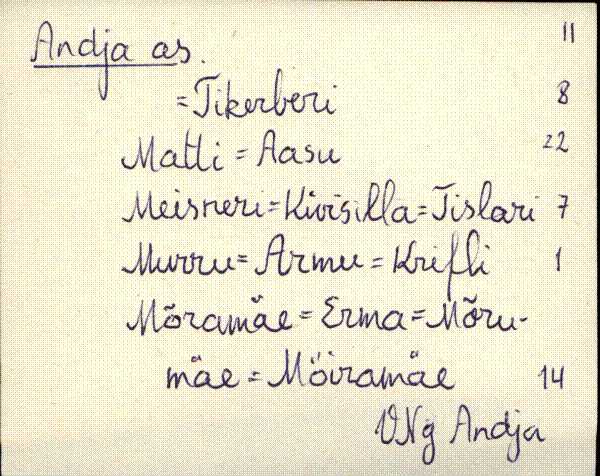 Andja as. 11
=Tikerberi 8
Matli = Aasu 22
Meisneri=Kivisilla=Tislari 7
Murru=Armu=Krifli 1
Mõramäe=Erma=Mõru-
mäe = Mõiramäe 14
VNg Andja